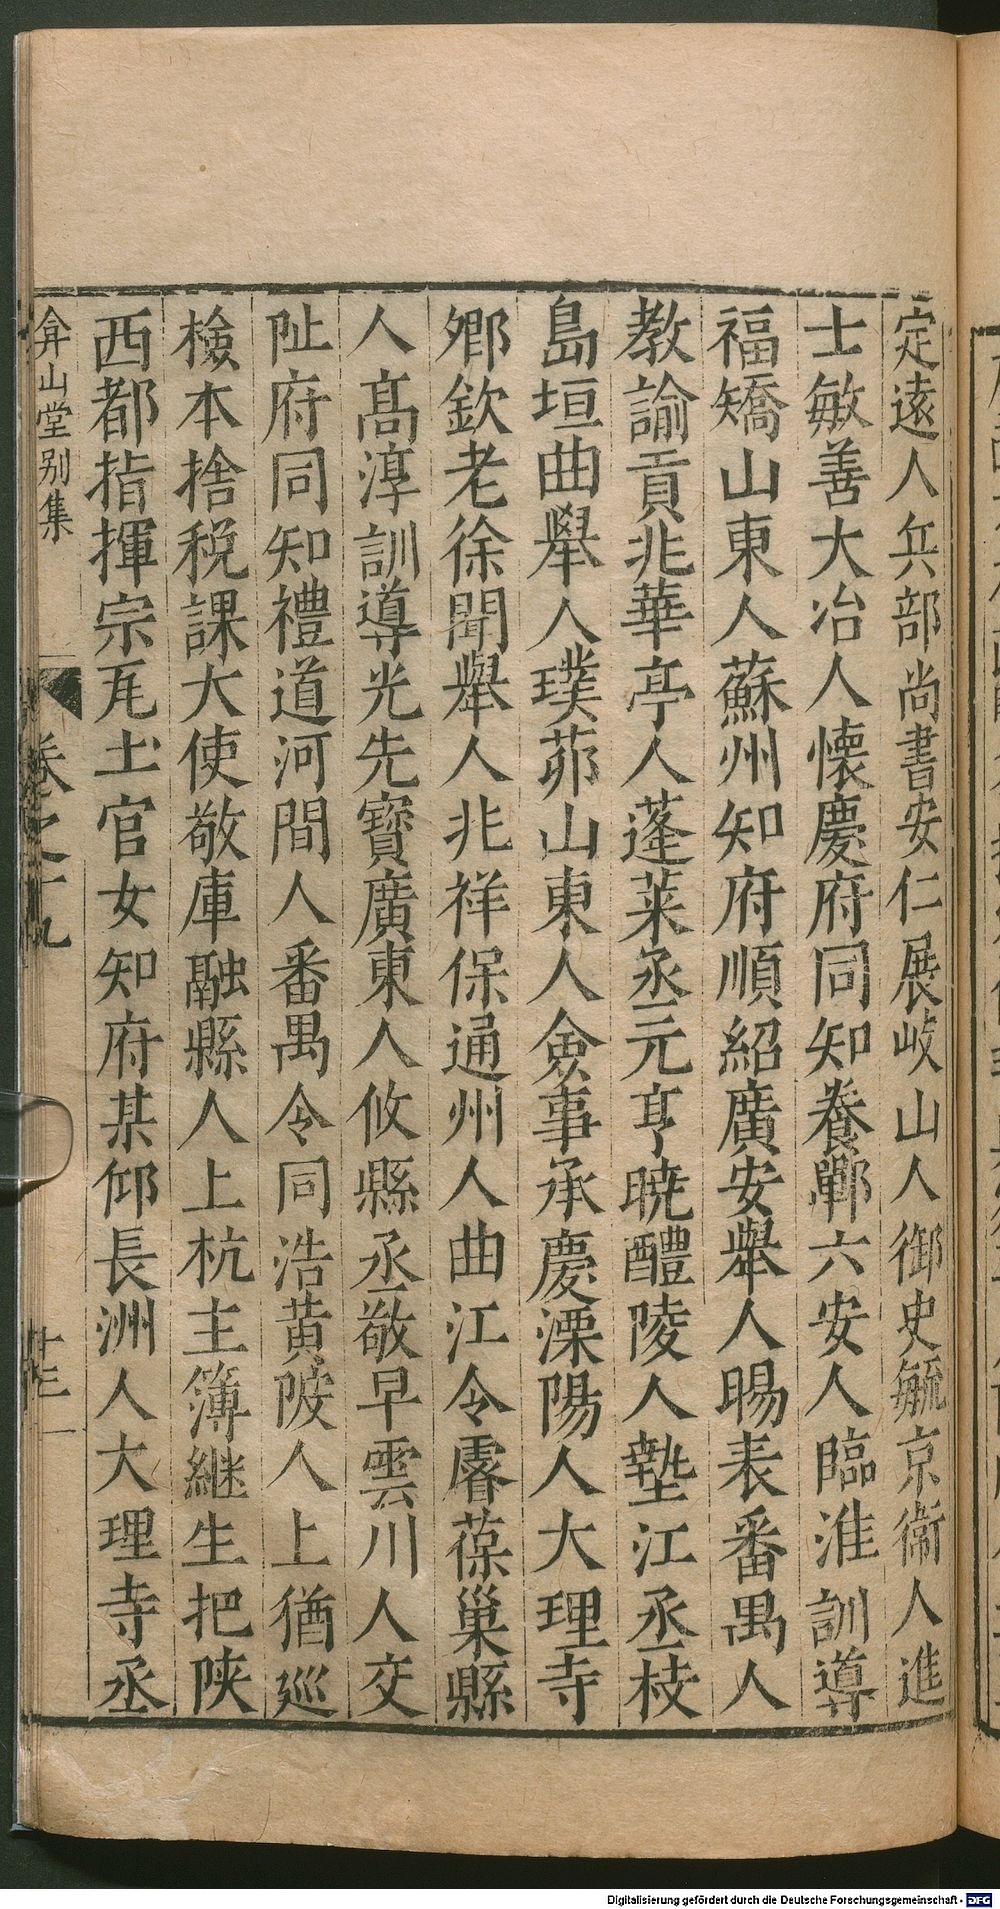 定遠人兵部尚書安仁展岐山人御史毓京衞人進
士敏善大冶人懷慶府同知養鄲六安人臨淮訓導
福矯山東人蘇州知府順紹廣安舉人賜表番禺人
教諭貢兆華亭人蓬萊丞元亨曉醴陵人墊江丞枝
島垣曲舉人璞茆山東人僉事承慶溧陽人大理寺
鄉欽老徐聞舉人兆祥保通州人曲江令睿葆巢縣
人髙淳訓導光先寳廣東人攸縣丞敬早雲川人交
阯府同知禮道河間人番禺令同浩黄陂人上猶巡
檢本捨税課大使敬庫融縣人上杭主簿継生把陕
西都指揮宗瓦土官女知府某仰長洲人大理寺丞
弇山堂别集
卷之十九
十三
Digitalisierung gefördert durch die Deutsche Forschungsgemeinschaft - DFG